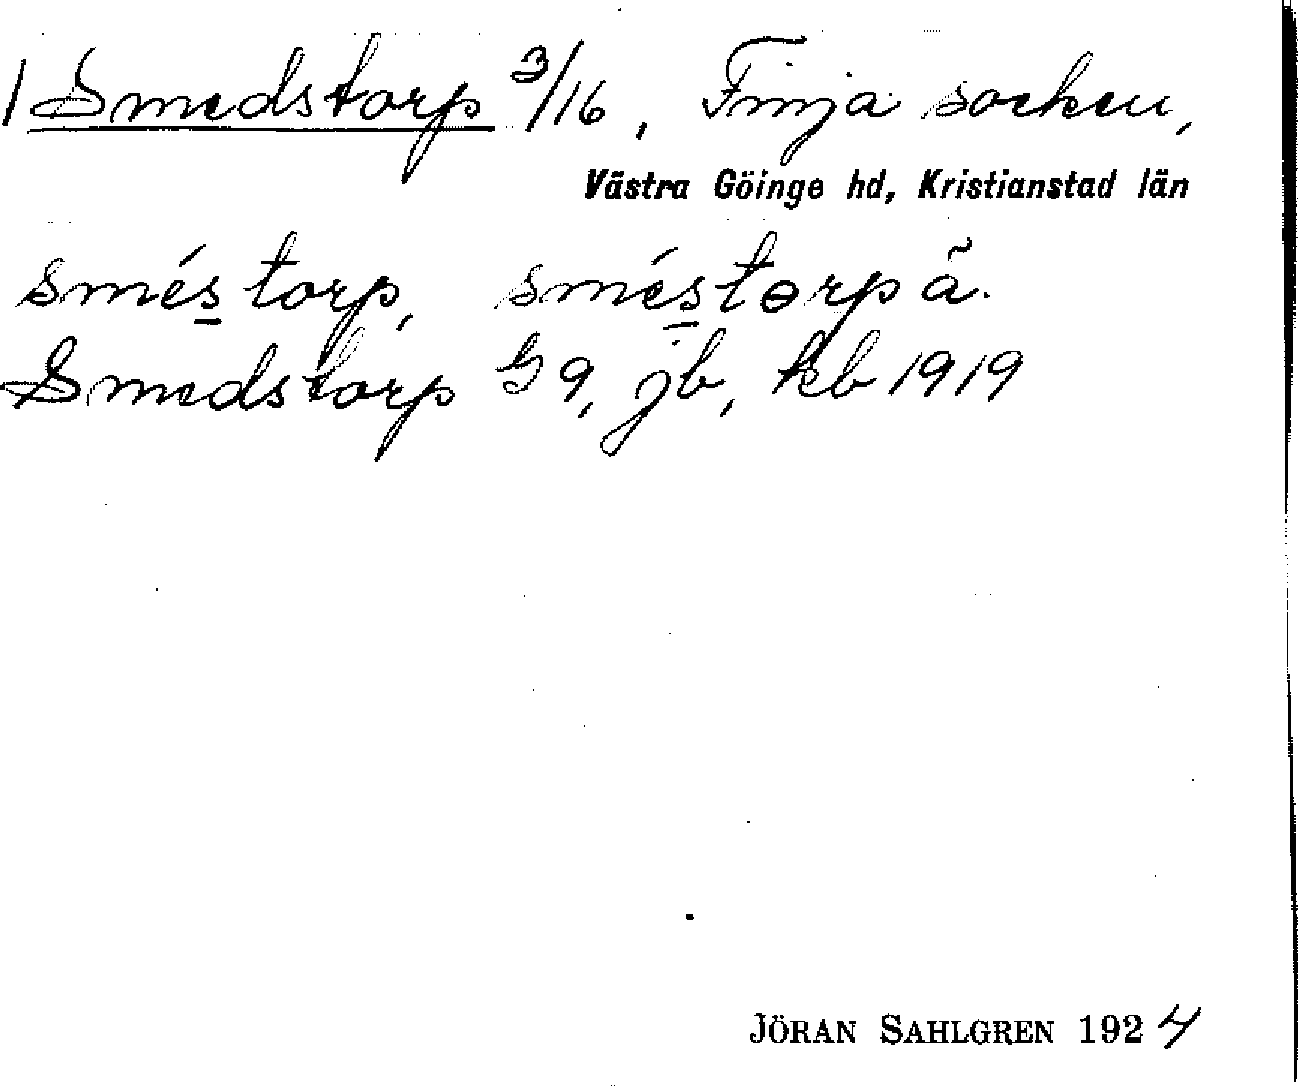 1 Smedstorp 3/16, Finja socken,
Västra Göinge hd, Kristianstad län
smés torp, sméstɵrpã.
Smedstorp G 9, jb, kb 1919
JÖRAN SAHLGREN 1924